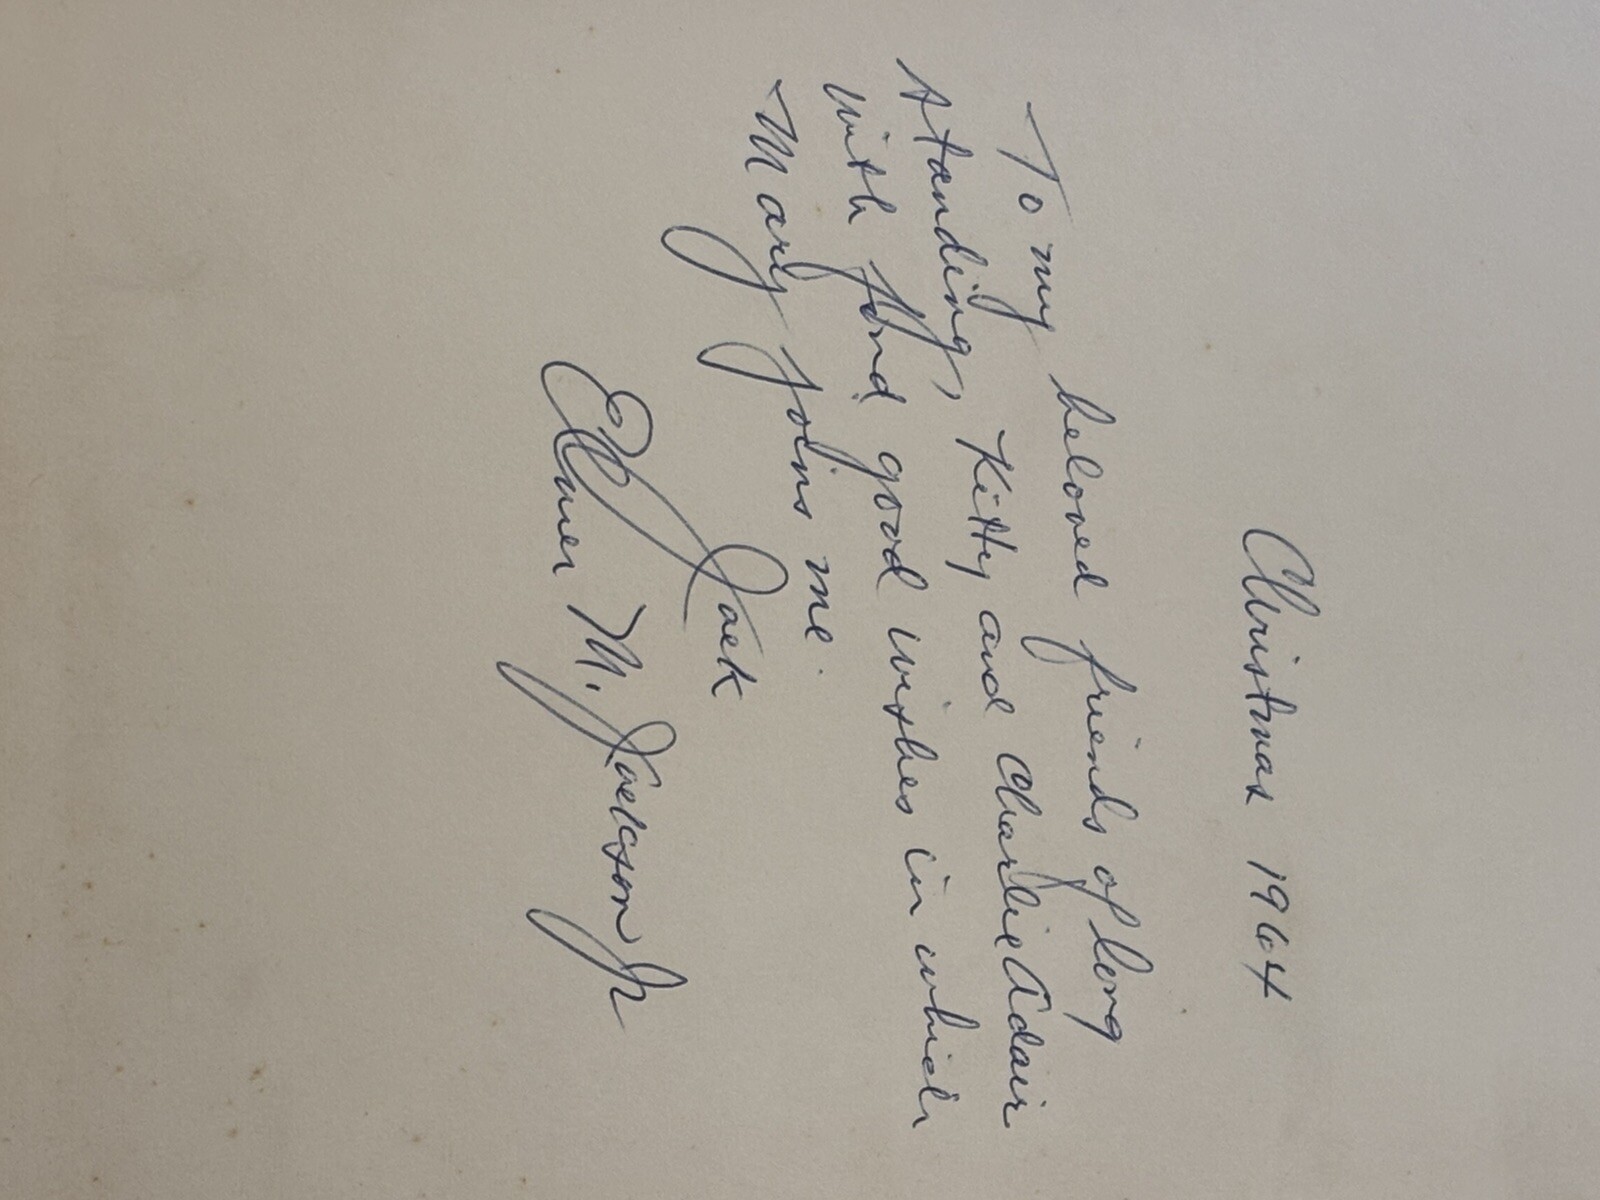 Christmas 1964
To my beloved friends of long
standing, Kitty and Charlie Adair
with fond good wishes in which
Mary joins me.
Jack
Elmer M. Jackson Jr